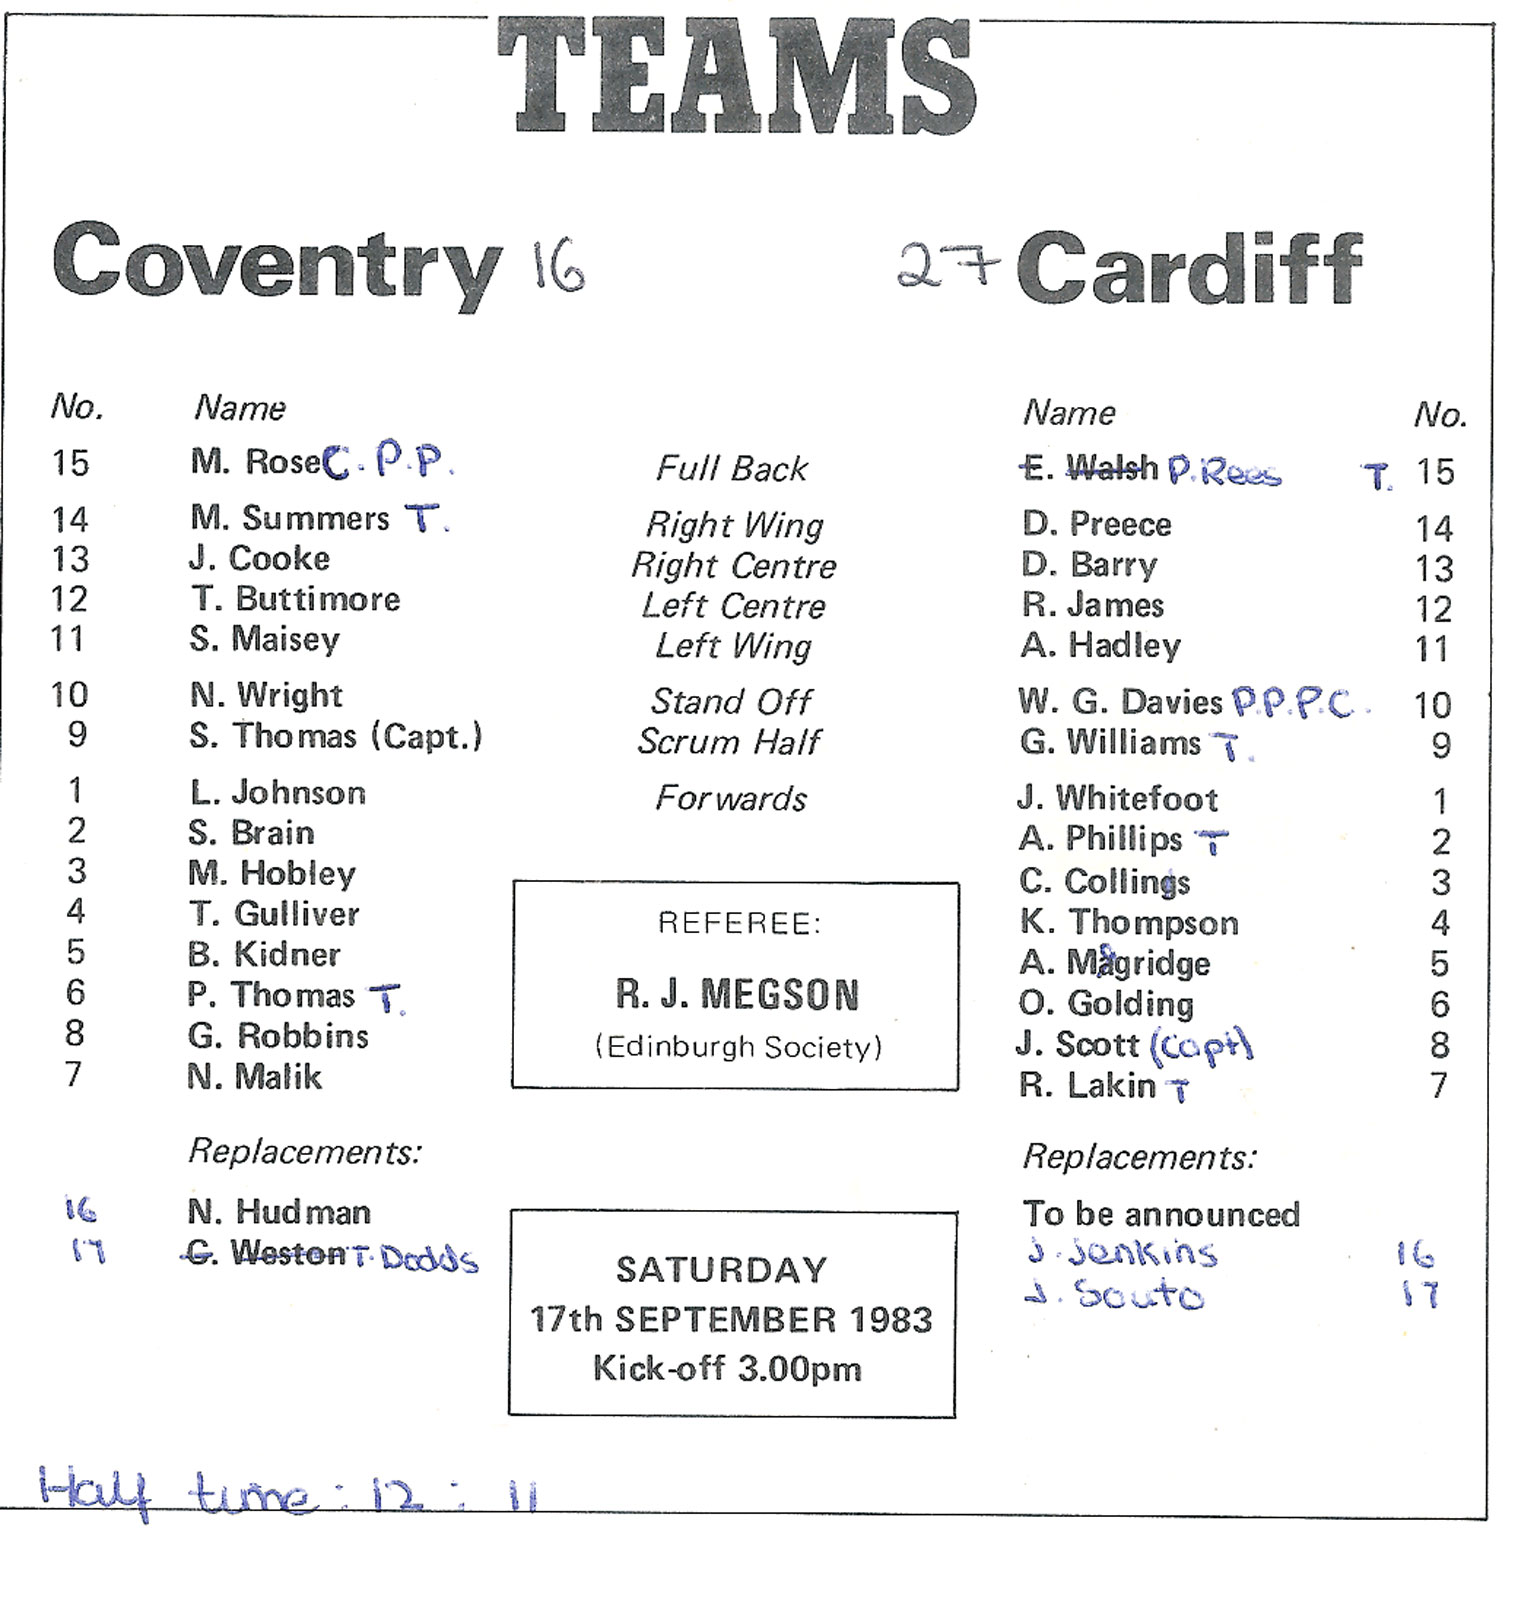 TEAMS
Coventry 16 27 Cardiff
No. Name Name No.
15 M. Rose C. P. P. Full Back E. Walsh P. Rees T. 15
14 M. Summers T. Right Wing D. Preece 14
13 J. Cooke Right Centre D. Barry 13
12 T. Buttimore Left Centre R. James 12
11 S. Maisey Left Wing A. Hadley 11
10 N. Wright Stand Off W. G. Davies P.P.P.C. 10
9 S. Thomas (Capt.) Scrum Half G. Williams T. 9
1 L. Johnson Forwards J. Whitefoot 1
2 S. Brain A. Phillips T 2
3 M. Hobley C. Collings 3
4 T. Gulliver K. Thompson 4
5 B. Kidner A. Mogridge 5
6 P. Thomas T. O. Golding 6
8 G. Robbins J. Scott (Capt) 8
7 N. Malik R. Lakin T 7
REFEREE:
R. J. MEGSON
(Edinburgh Society)
Replacements: Replacements:
16 N. Hudman To be announced
17 G. Weston T. Dodds J. Jenkins 16
J. Souto 17
SATURDAY
17th SEPTEMBER 1983
Kick-off 3.00pm
Half time : 12 : 11